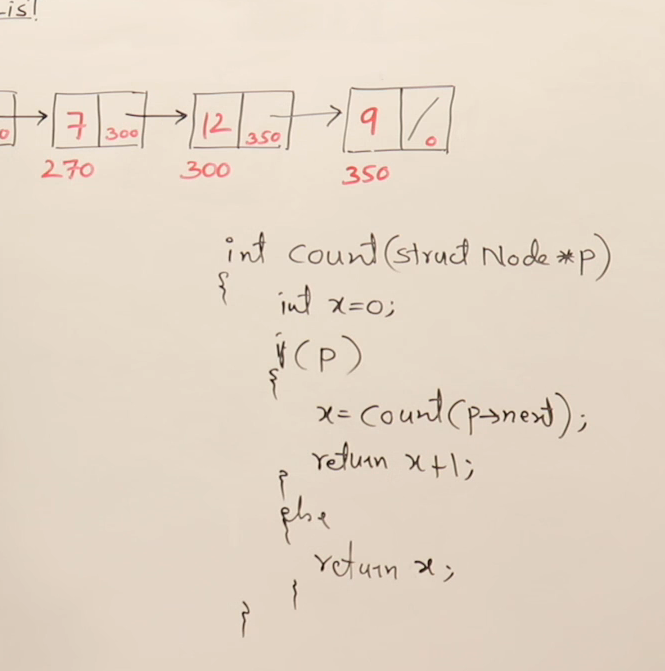 is!
0 7 300 12 350 9 0
270 300 350
int count(struct Node *p)
{
int x=0;
if(p)
{
x= count(p→next);
return x+1;
}
else
return x;
}
}